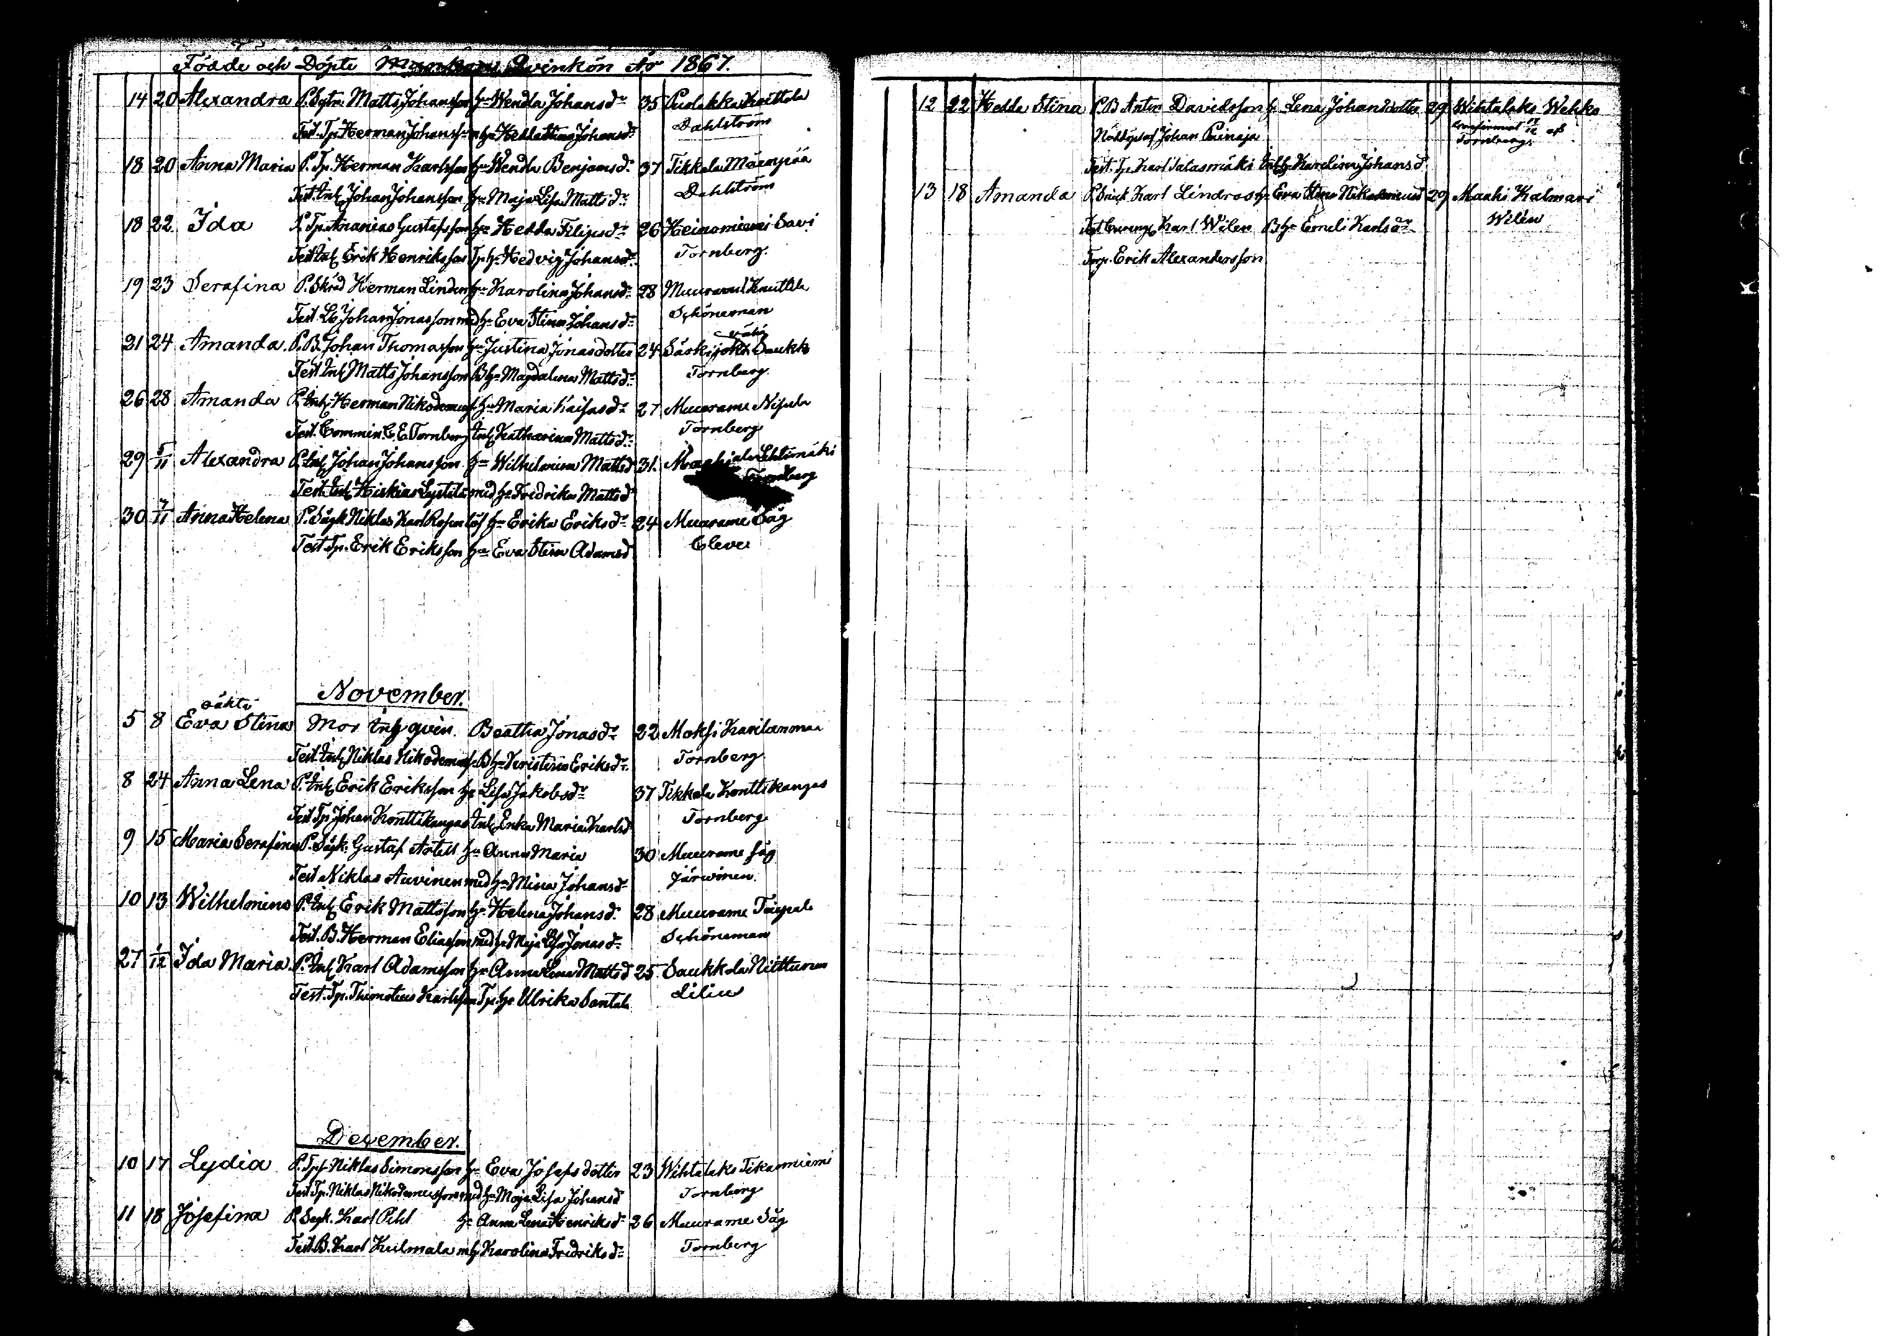 Födde och Döpte Mankön Qvinkön År 1867.
14 20 Alexandra P. Sytn. Matts Johansson hu Wenda Johansdr 35 Pudakka Knuttila
Test. Tp. Herman Johansson hu Hedda Stina Johansdr Dahlström
18 20 Anna Maria P. Tp. Herman Karlsson hu Wendla Benjamsdr 37 Tikkala Mäenpää
Test. Inh. Johan Johansson hu Maja Lisa Mattsdr Dahlström
18 22 Ida P. Tp. Ananias Gustafsson hu Hedda Filipsdr 26 Heinoniemi Savi
Test Inh Erik Henriksson Tp hu Hedvig Johansdr Tornberg.
19 23 Serafina P. Skräd Herman Linden hu Karolina Johansdr 28 Muurame Knuttila
Test. Johan Jonasson med hu Eva Stina Johansdr Schöneman
21 24 Amanda P. B. Johan Thomasson hu Justina Jonasdotter 24 Särkijoki Saukko
Test Inh Matts Johansson B hu Magdalena Mattsdr Tornberg.
26 28 Amanda P. Inh. Herman Nikodemuss. hu Maria Kaisasdr 27 Muurame Nisula
Test. Commin. C. E. Tornberg Inh Katharina Mattsdr Tornberg
29 5/11 Alexandra P. Inh Johan Johansson hu Wilhelmina Mattsd 31. Lehtimäki
Test. Inh. Hiskias med hu Fredrika Mattsd Tornberg
30 7/11 Anna Helena P. Sågk Niklas Karl Rosenlöf hu Erika Eriksdr 24 Muurame Såg
Test Tp. Erik Eriksson hu Eva Stina Adamsd Cleve
November.
oäkta
5 8 Eva Stina Mor Inh qvin. Beatha Jonasdr 22 Moksi
Test. Inh Niklas Nikodemuss. B hu Kristina Eriksdr Tornberg
8 24 Anna Lena P. Inh Erik Eriksson hu Lisa Jakobsdr 37 Tikkala Konttikangas
Test Tp Johan Konttikangas Inh Erika Maria Karlsd Tornberg
9 15 Maria Serafina P. Sågk. Gustaf Axtell hu Anna Maria 30 Muurame Såg
Test Niklas Auvinen med hu Mina Johansdr Järvinen.
10 13 Wilhelmina P. Inh Erik Mattsson hu Helena Johansdr 28 Muurame Tarpale
Test. B. Herman Eliasson med hu Maja Lisa Jonasdr Schöneman
27 1/12 Ida Maria P. Inh Karl Adamsson hu Anna Lena Mattsd 25 Saukkola Niittunen
Test. Tp. Thimoteus Karlsson Tp. hu Ulrika Santala Lilius
December.
10 17 Lydia P. Tp. Niklas Simonsson hu Eva Josefsdotter 23 Wihtalaks Tikanniemi
Test Tp. Niklas Nikodemusson med hu Maja Lisa Johansd Tornberg
11 18 Josefina P. Sågk. Karl Pihl hu Anna Lena Henriksdr 26 Muurame Såg
Test B. Karl Kulmala m hu Karolina Fredriksdr Tornberg
12 22 Hedda Stina P. B Anton Davidsson hu Lena Johansdotter 29 Wihtalaks Wehka
Nöddöpt af Johan Painaja af
Tornberg.
Test. Tp. Karl Salasmäki Inh hu Karolina Johansd
13 18 Amanda P. Karl Lindroos hu Eva Stina 29 Maaki Kalmari
Test Karl Wilen B hu Emeli Karlsdr Wilén
Torp. Erik Alexandersson
K O D A